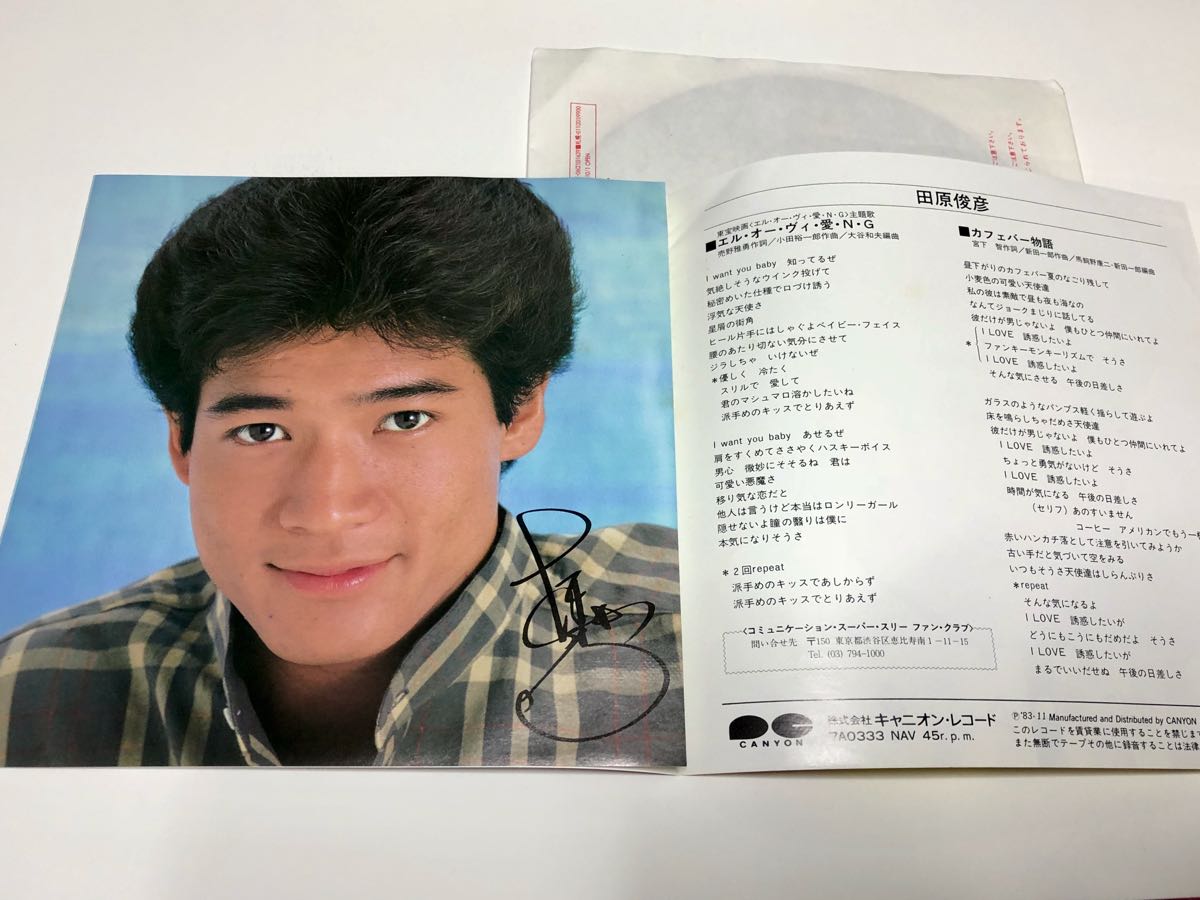 田原俊彦
東宝映画〈エル・オー・ヴィ・愛・N・G〉主題歌
■エル・オー・ヴィ・愛・N・G
売野雅勇作詞／小田裕一郎作曲／大谷和夫編曲
I want you baby 知ってるぜ
気絶しそうなウインク投げて
秘密めいた仕種で口づけ誘う
浮気な天使さ
星屑の街角
ヒール片手にはしゃぐよベイビー・フェイス
腰のあたり切ない気分にさせて
ジラしちゃ いけないぜ
*優しく 冷たく
スリルで 愛して
君のマシュマロ溶かしたいね
派手めのキッスでとりあえず
I want you baby あせるぜ
肩をすくめてささやくハスキーボイス
男心 微妙にそそるね 君は
可愛い悪魔さ
移り気な恋だと
他人は言うけど本当はロンリーガール
隠せないよ瞳の翳りは僕に
本気になりそうさ
*2回repeat
派手めのキッスであしからず
派手めのキッスでとりあえず
〈コミュニケーション・スーパー・スリー ファン・クラブ〉
問い合せ先 〒150 東京都渋谷区恵比寿南1-11-15
Tel. (03) 794-1000
■カフェバー物語
宮下 智作詞／新田一郎作曲／馬飼野康二・新田一郎編曲
昼下がりのカフェバー夏のなごり残して
小麦色の可愛い天使達
私の彼は素敵で昼も夜も海なの
なんてジョークまじりに話してる
彼だけが男じゃないよ 僕もひとつ仲間にいれてよ
I LOVE 誘惑したいよ
* ファンキーモンキーリズムで そうさ
I LOVE 誘惑したいよ
そんな気にさせる 午後の日差しさ
ガラスのようなパンプス軽く揺らして遊ぶよ
床を鳴らしちゃだめさ天使達
彼だけが男じゃないよ 僕もひとつ仲間にいれてよ
I LOVE 誘惑したいよ
ちょっと勇気がないけど そうさ
I LOVE 誘惑したいよ
時間が気になる 午後の日差しさ
(セリフ)あのすいません
コーヒー アメリカンでもう一
赤いハンカチ落として注意を引いてみようか
古い手だと気づいて空をみる
いつもそうさ天使達はしらんぷりさ
*repeat
そんな気になるよ
I LOVE 誘惑したいが
どうにもこうにもだめだよ そうさ
I LOVE 誘惑したいが
まるでいいだせぬ 午後の日差しさ
CANYON
株式会社 キャニオン・レコード
7A0333 NAV 45r.p.m.
Ⓟ'83・11 Manufactured and Distributed by CANYON
このレコードを賃貸業に使用することを禁じま
また無断でテープその他に録音することは法律